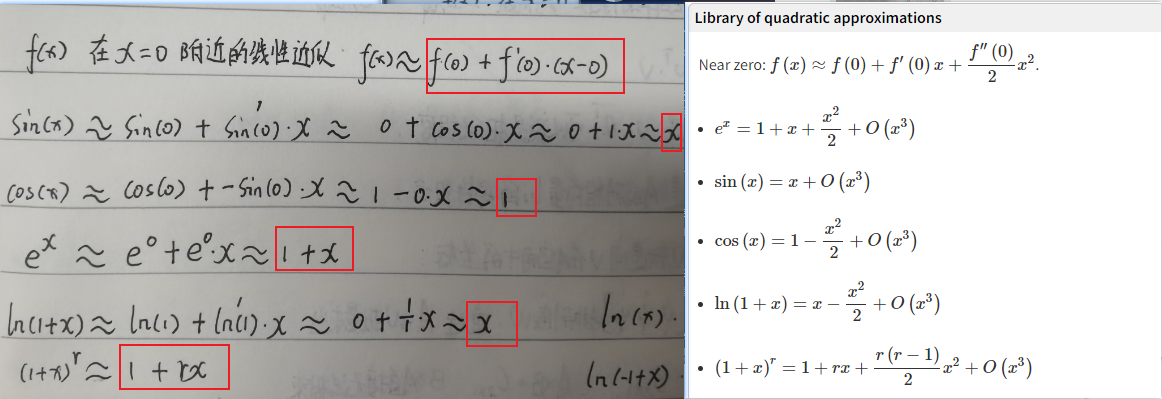 f(x) 在 x=0 附近的线性近似 f(x)≈f(0)+f'(0)·(x-0)
sin(x) ≈ sin(0) + sin'(0)·x ≈ 0 + cos(0)·x ≈ 0+1·x ≈ x
cos(x) ≈ cos(0) + -sin(0)·x ≈ 1 - 0·x ≈ 1
e^x ≈ e^0 + e^0·x ≈ 1+x
ln(1+x) ≈ ln(1) + ln'(1)·x ≈ 0 + \frac{1}{1}·x ≈ x ln(x).
(1+x)^r ≈ 1 + rx ln(-1+x)
Library of quadratic approximations
Near zero: f (x) ≈ f (0) + f′ (0) x + \frac{f″ (0)}{2} x^2.
• e^x = 1 + x + \frac{x^2}{2} + O (x^3)
• sin (x) = x + O (x^3)
• cos (x) = 1 − \frac{x^2}{2} + O (x^3)
• ln (1 + x) = x − \frac{x^2}{2} + O (x^3)
• (1 + x)^r = 1 + rx + \frac{r (r − 1)}{2} x^2 + O (x^3)